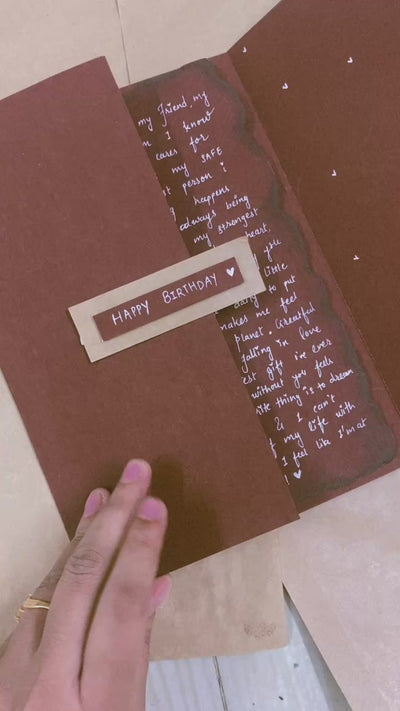 my Friend, my
I know
cares for
my SAFE
person i
happens
always being
my strongest
heart.
you
little
to put
makes me feel
planet. Grateful
falling in love
gift i've ever
without you feels
thing is to dream
& I can't
my life with
I feel like I'm at
! ♥
HAPPY BIRTHDAY ♥